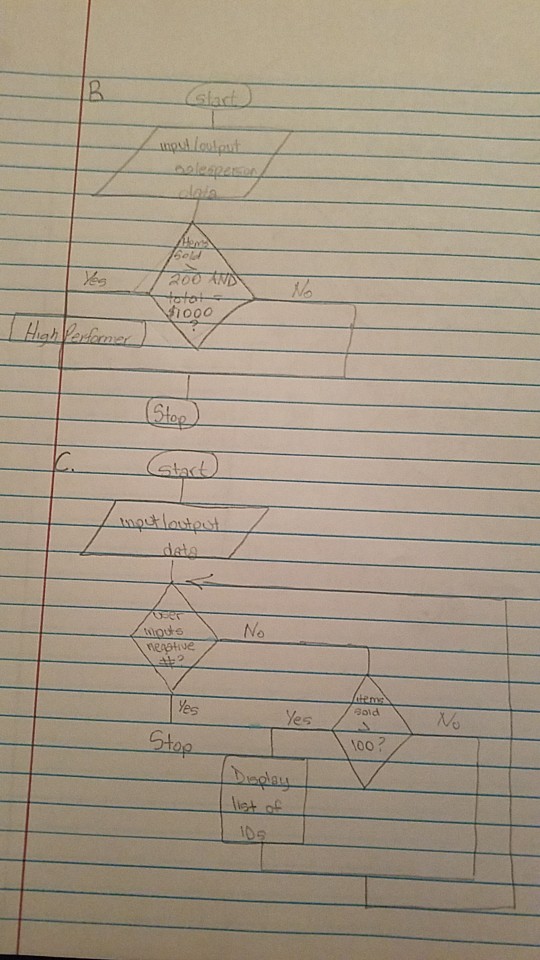 B
Start
input/output
salesperson
data
Items
Sold
>
200 AND
total =
$1000
?
Yes
No
High Performer
Stop
C.
Start
input/output
data
User
inputs
negative
#?
No
Yes
Stop
items
sold
>
100?
Yes
No
Display
list of
IDs